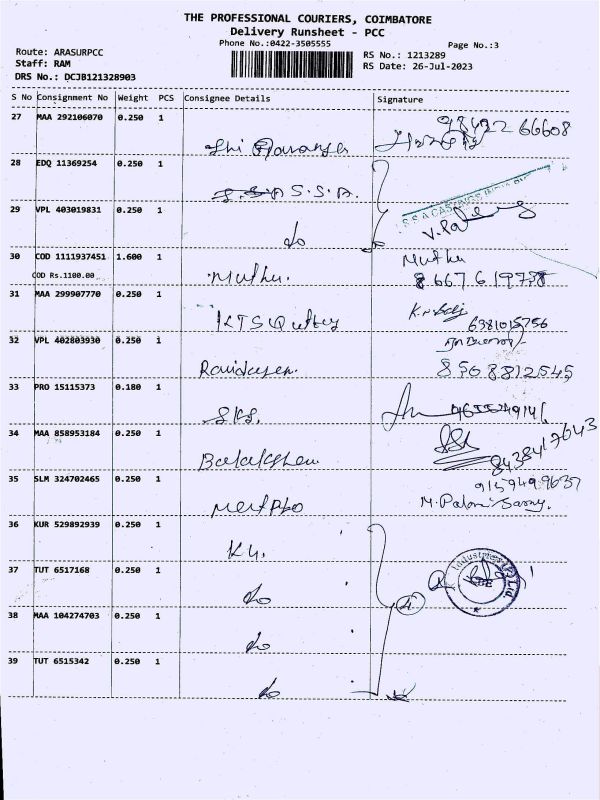 THE PROFESSIONAL COURIERS, COIMBATORE
Delivery Runsheet - PCC
Phone No.:0422-3505555
Page No.:3
Route: ARASURPCC
RS No.: 1213289
Staff: RAM
RS Date: 26-Jul-2023
DRS No.: DCJB121328903
S No Consignment No Weight PCS Consignee Details Signature
27 MAA 292106070 0.250 1
28 EDQ 11369254 0.250 1 S.S.A.
29 VPL 403019831 0.250 1 do
30 COD 1111937451 1.600 1 Muthu. Muthu
COD Rs.1100.00
31 MAA 299907770 0.250 1
6381015756
32 VPL 402803930 0.250 1
8508812545
33 PRO 15115373 0.180 1 SKS.
34 MAA 858953184 0.250 1
8438417643
35 SLM 324702465 0.250 1
9159499637
36 KUR 529892939 0.250 1
37 TUT 6517168 0.250 1 do
38 MAA 104274703 0.250 1 do
39 TUT 6515342 0.250 1 do